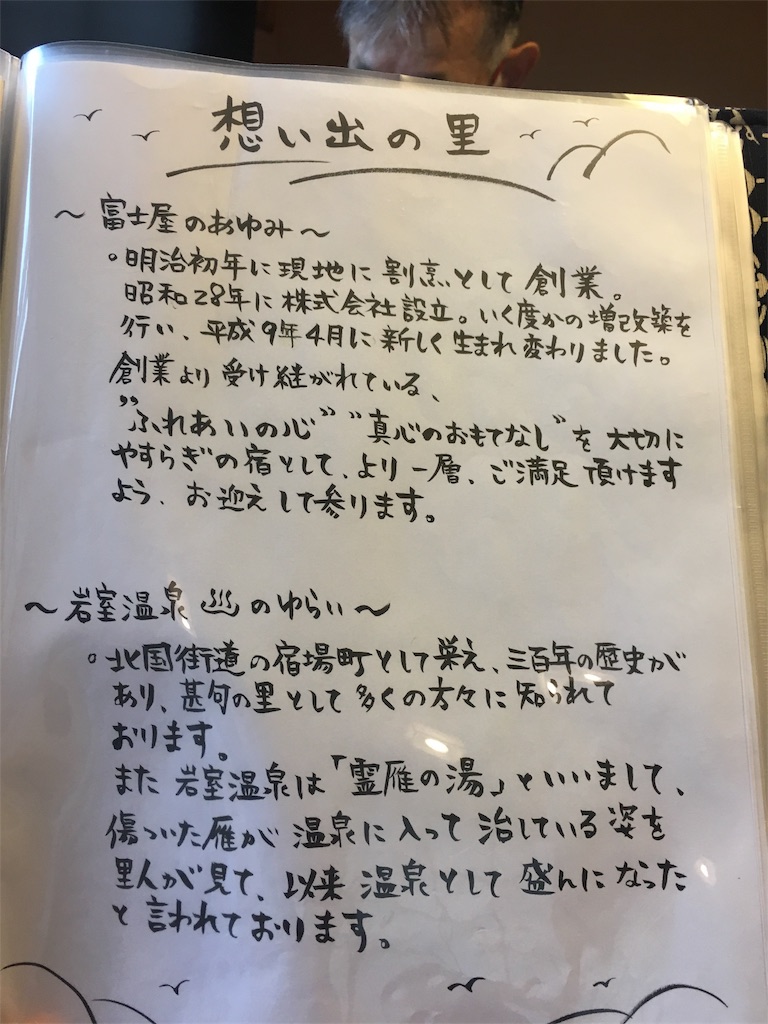 想い出の里
～富士屋のあゆみ～
。明治初年に現地に割烹として創業。
昭和28年に株式会社設立。いく度かの増改築を
行い、平成9年4月に新しく生まれ変わりました。
創業より受け継がれている、
”ふれあいの心” ”真心のおもてなし”を大切に
やすらぎの宿として、より一層、ご満足頂けます
よう、お迎えして参ります。
～岩室温泉♨のゆらい～
。北国街道の宿場町として栄え、三百年の歴史が
あり、甚句の里として多くの方々に知られて
おります。
また岩室温泉は「霊雁の湯」といいまして、
傷ついた雁が温泉に入って治している姿を
里人が見て、以来温泉として盛んになった
と言われております。